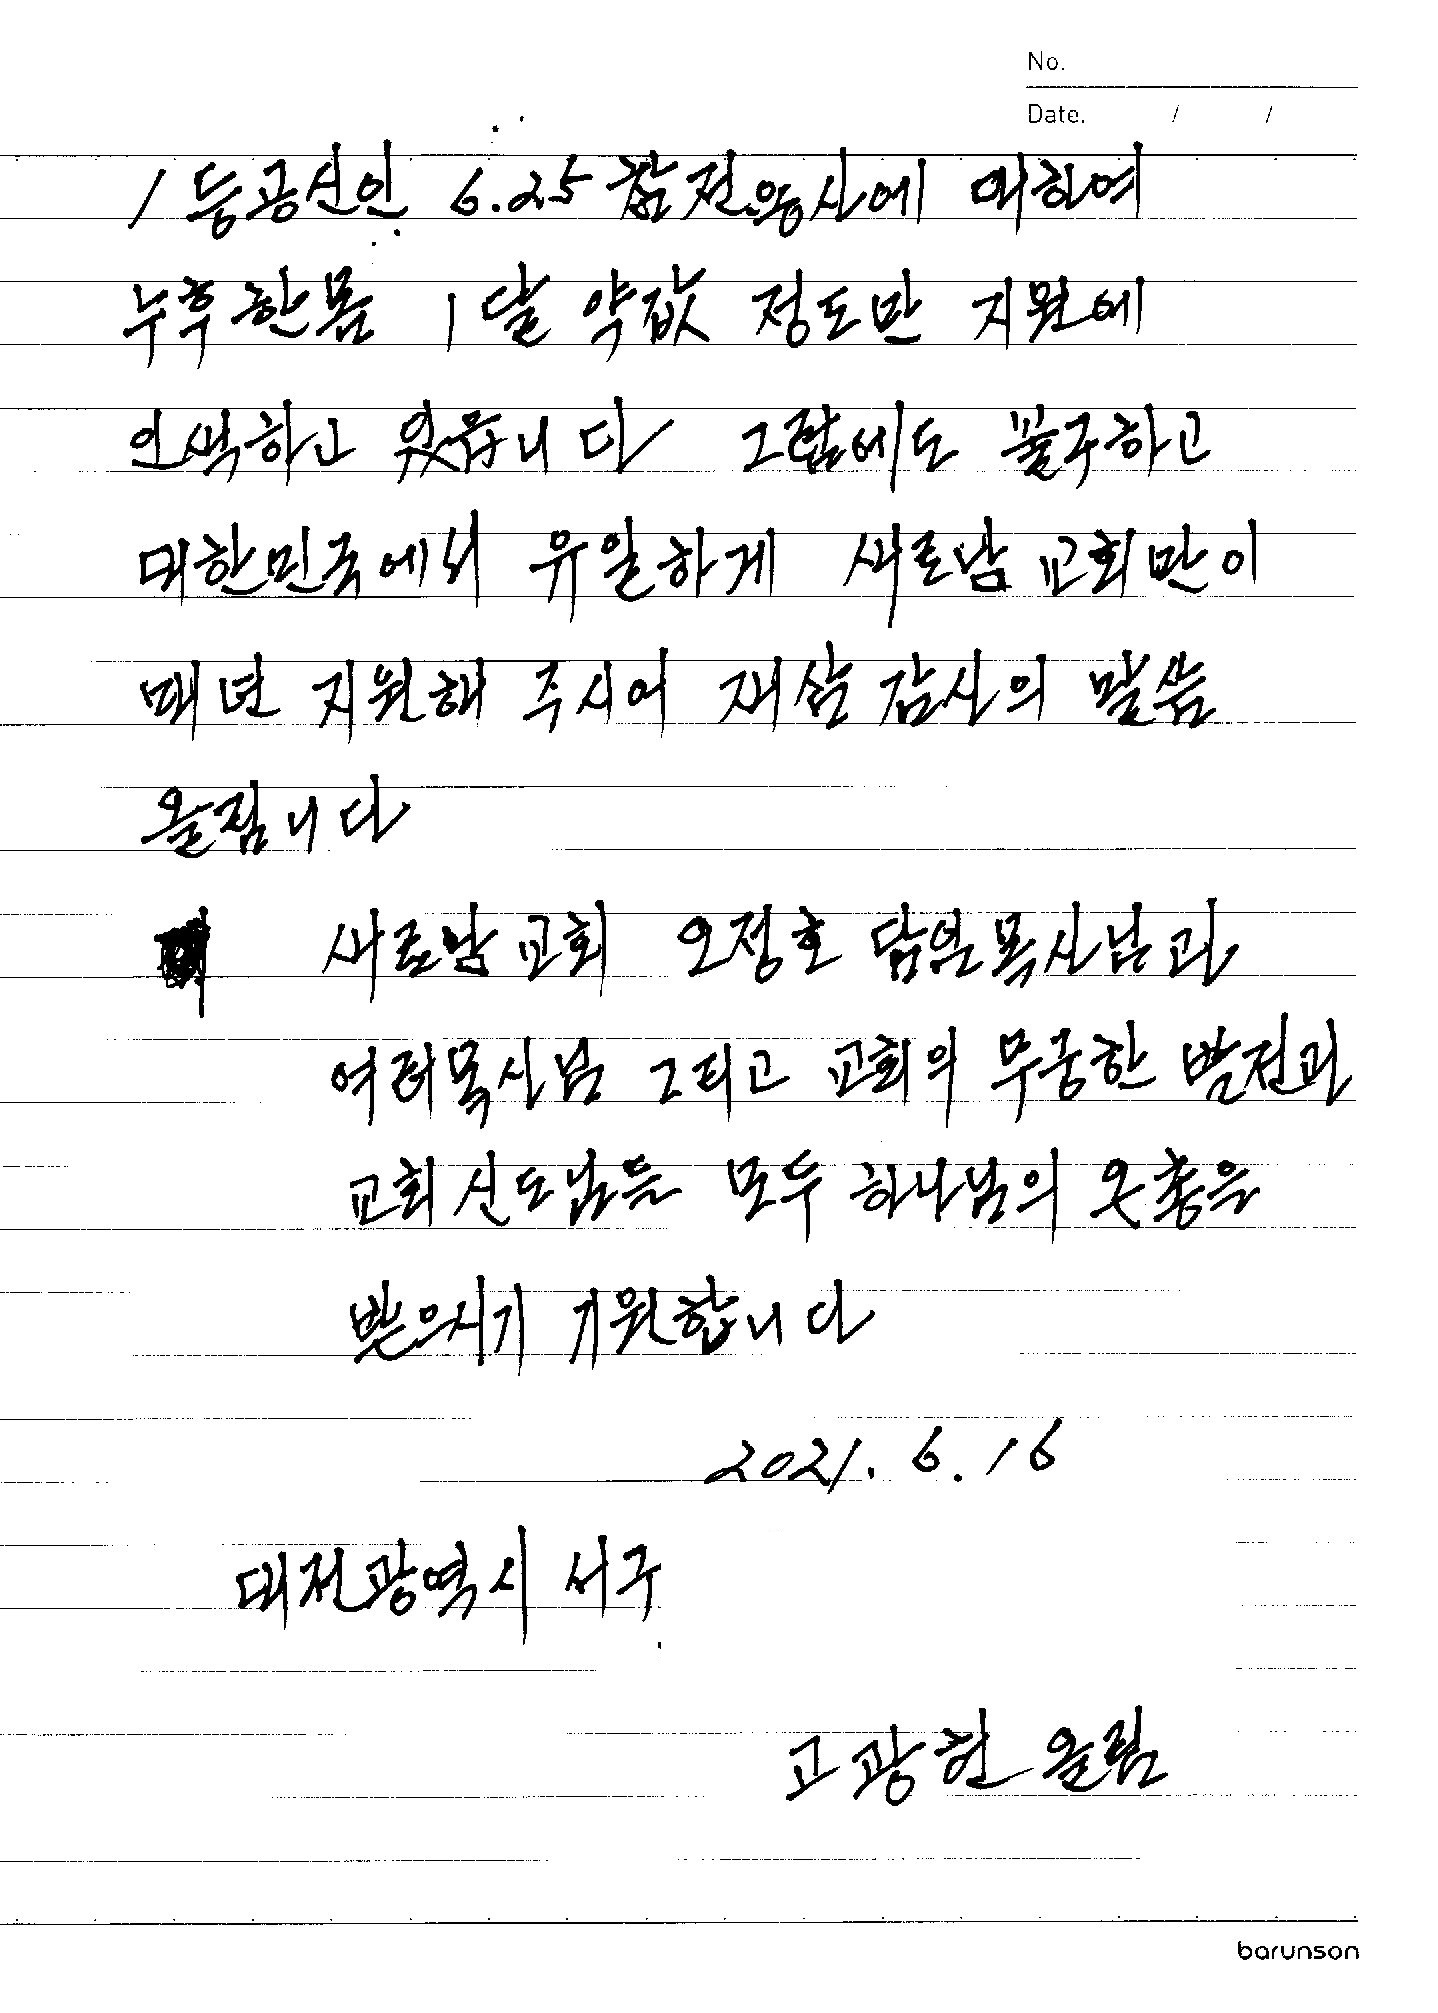 No.
Date. / /
1등공신인 6.25 참전용사에 대하여
누후한몸 1달 약값 정도만 지원에
인색하고 있습니다 그럼에도 불구하고
대한민국에서 유일하게 새로남 교회만이
매년 지원해 주시어 재삼 감사의 말씀
올립니다
새로남교회 오정호 담임목사님과
여러목사님 그리고 교회의 무궁한 발전과
교회 신도님들 모두 하나님의 은총을
받으시기 기원합니다
2021. 6. 16
대전광역시 서구
고광헌 올림
barunson